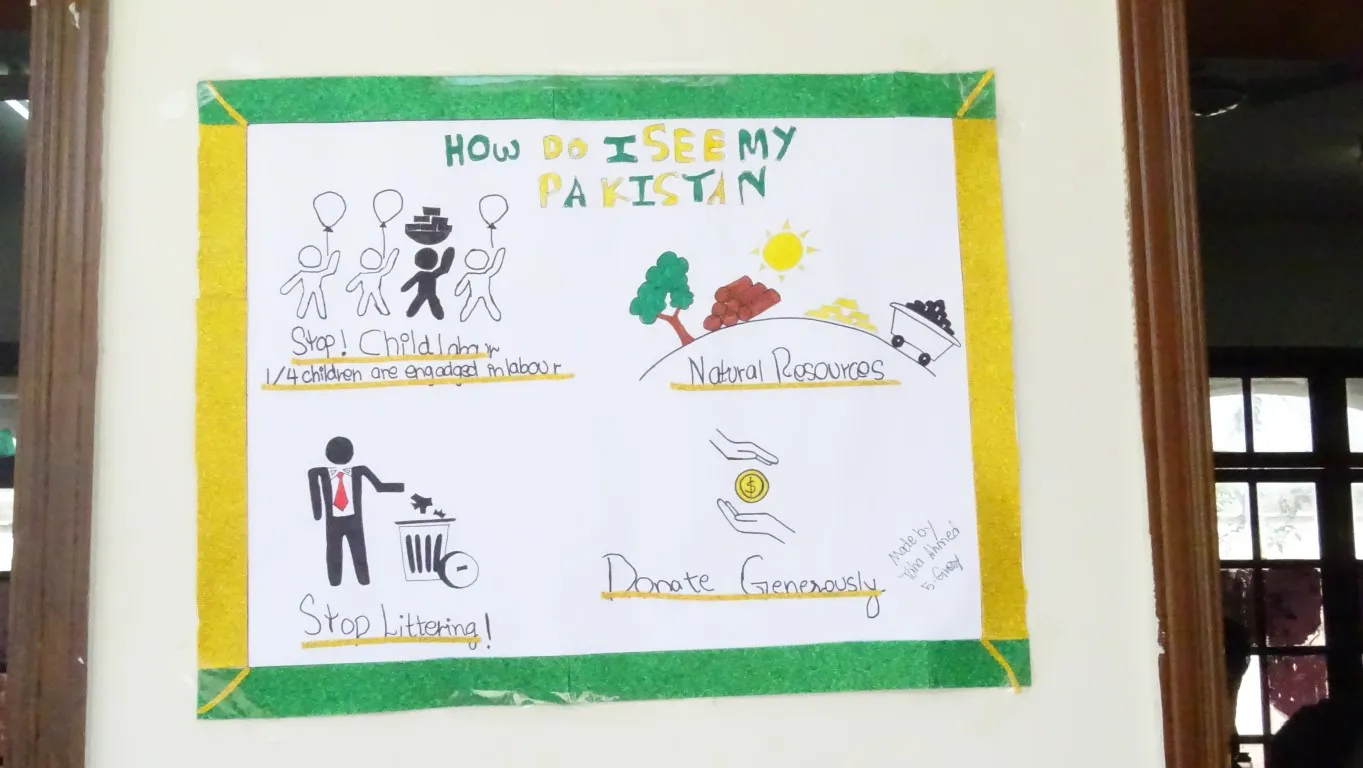 HOW DO I SEE MY
PAKISTAN
Stop! Child labour
1/4 children are engadged in labour
Natural Resources
Stop Littering!
$
Donate Generously
Made by
Ahmed
5-